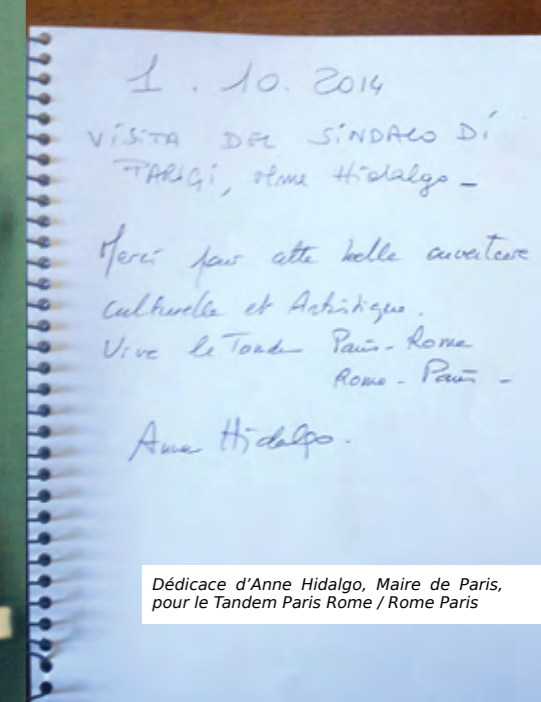 1. 10. 2014
VISITA DEL SINDACO DI
PARIGI, Mme Hidalgo -
Merci pour cette belle ouverture
culturelle et Artistique.
Vive le Tandem Paris - Rome
Rome - Paris -
Anne Hidalgo.
Dédicace d’Anne Hidalgo, Maire de Paris,
pour le Tandem Paris Rome / Rome Paris